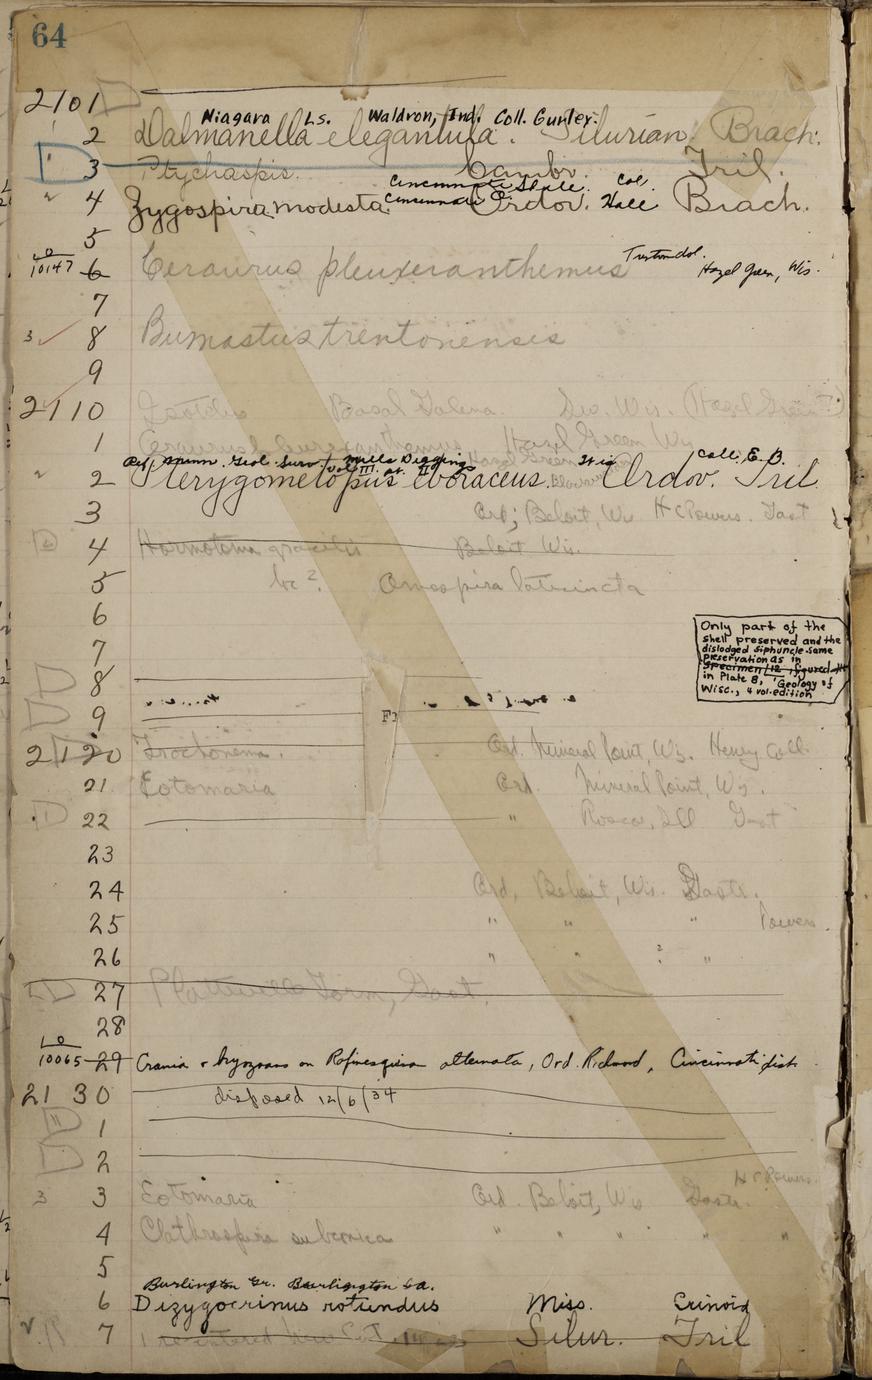 64
2101
Niagara Ls. Waldron, Ind. Coll. Gurley.
2 Dalmanella elegantula. Silurian. Brach.
3 Ptychaspis. Cambr. Tril.
Cincinnati Shale. Col.
4 Zygospira modesta. Cincinnati O. Ordov. Hall Brach.
5
10147 6 Ceraurus pleurexanthemus Trenton dol. Hazel Green, Wis.
7
3 8 Bumastus trentonensis
9
2110 Basal Galena. Wis. (Hazel Green?)
1 Hazel Green
Geol. Surv. Vol. III. Mills Diggings Coll. E. B.
2 Pterygometopus eboraceus. Ordov. Tril.
3 Ord; Beloit, Wis H C Powers. Gast
4 Hormotoma gracilis Beloit Wis.
5 be ?. Omospira laticincta
6
7
Only part of the
shell preserved and the
dislodged siphuncle-same
preservation as in
specimen 12, figured
in Plate 8, "Geology of
Wisc., 4 vol. edition"
8
9
2120 Trochonema. Ord. Mineral Point, Wis. Henry Coll.
21 Eotomaria Ord. Mineral Point, Wis.
22 " Roscoe, Ill Gast
23
24 Ord, Beloit, Wis. Gastr.
25 " " " Powers.
26 " " ? "
27 Platteville Form, Gast.
28
10065 29 Crania & bryozoans on Rafinesquina alternata, Ord. Richmond, Cincinnati dist.
2130 disposed 12/6/34
1
2
H C Powers.
3 3 Eotomaria Ord. Beloit, Wis Gastr.
4 Clathrospira subconica " " " " "
5
Burlington Gr. Burlington Ia.
6 Dizygocrinus rotundus Miss. Crinoid
7 Silur. Tril